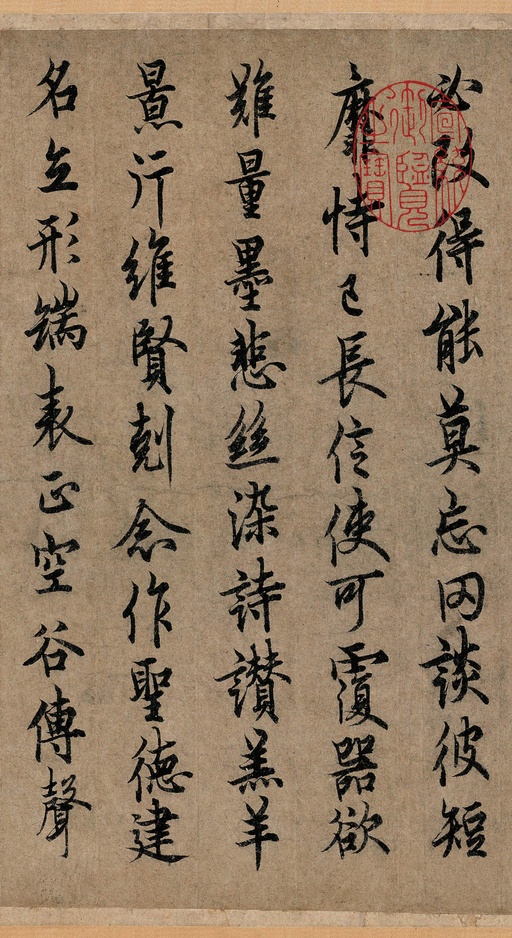 必改得能莫忘罔談彼短
靡恃己長信使可覆器欲
難量墨悲絲染詩讃羔羊
景行維賢剋念作聖德建
名立形端表正空谷傳聲
御覽之寶